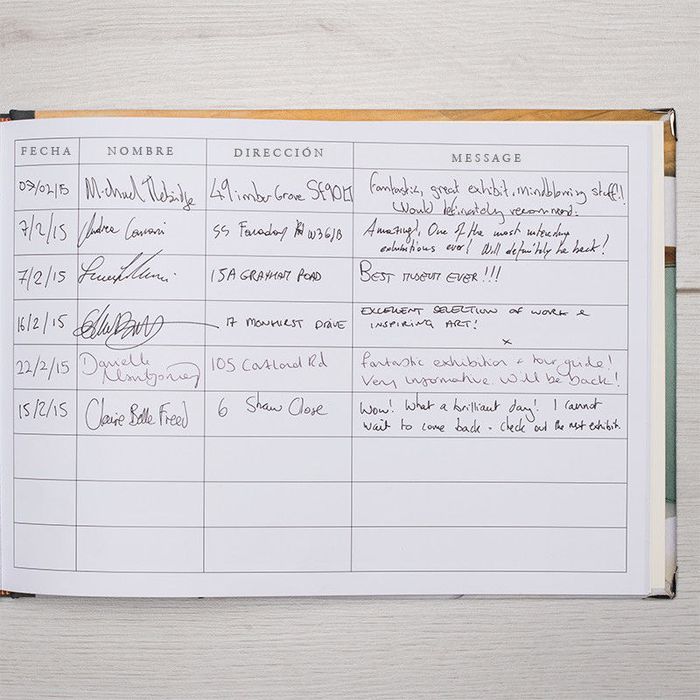 FECHA NOMBRE DIRECCIÓN MESSAGE
03/02/15 Michael 49 Grove Fantastic, great exhibit, mindblowing stuff!!
Would definately recommend.
7/2/15 Andrea 55 Faraday W36JB Amazing!, One of the most interesting
exhibitions ever! Will definitely be back!
7/2/15 15A GRAYHAM ROAD BEST MUSEUM EVER!!!
16/2/15 17 MONHURST DRIVE EXCELLENT SELECTION OF WORK &
INSPIRING ART!
x
22/2/15 Danielle Montgomery 105 Cartland Rd Fantastic exhibition + tour guide!
Very informative. Will be back!
15/2/15 Claire Belle Freed 6 Shaw Close Wow! What a brilliant day! I cannot
wait to come back - check out the next exhibit.